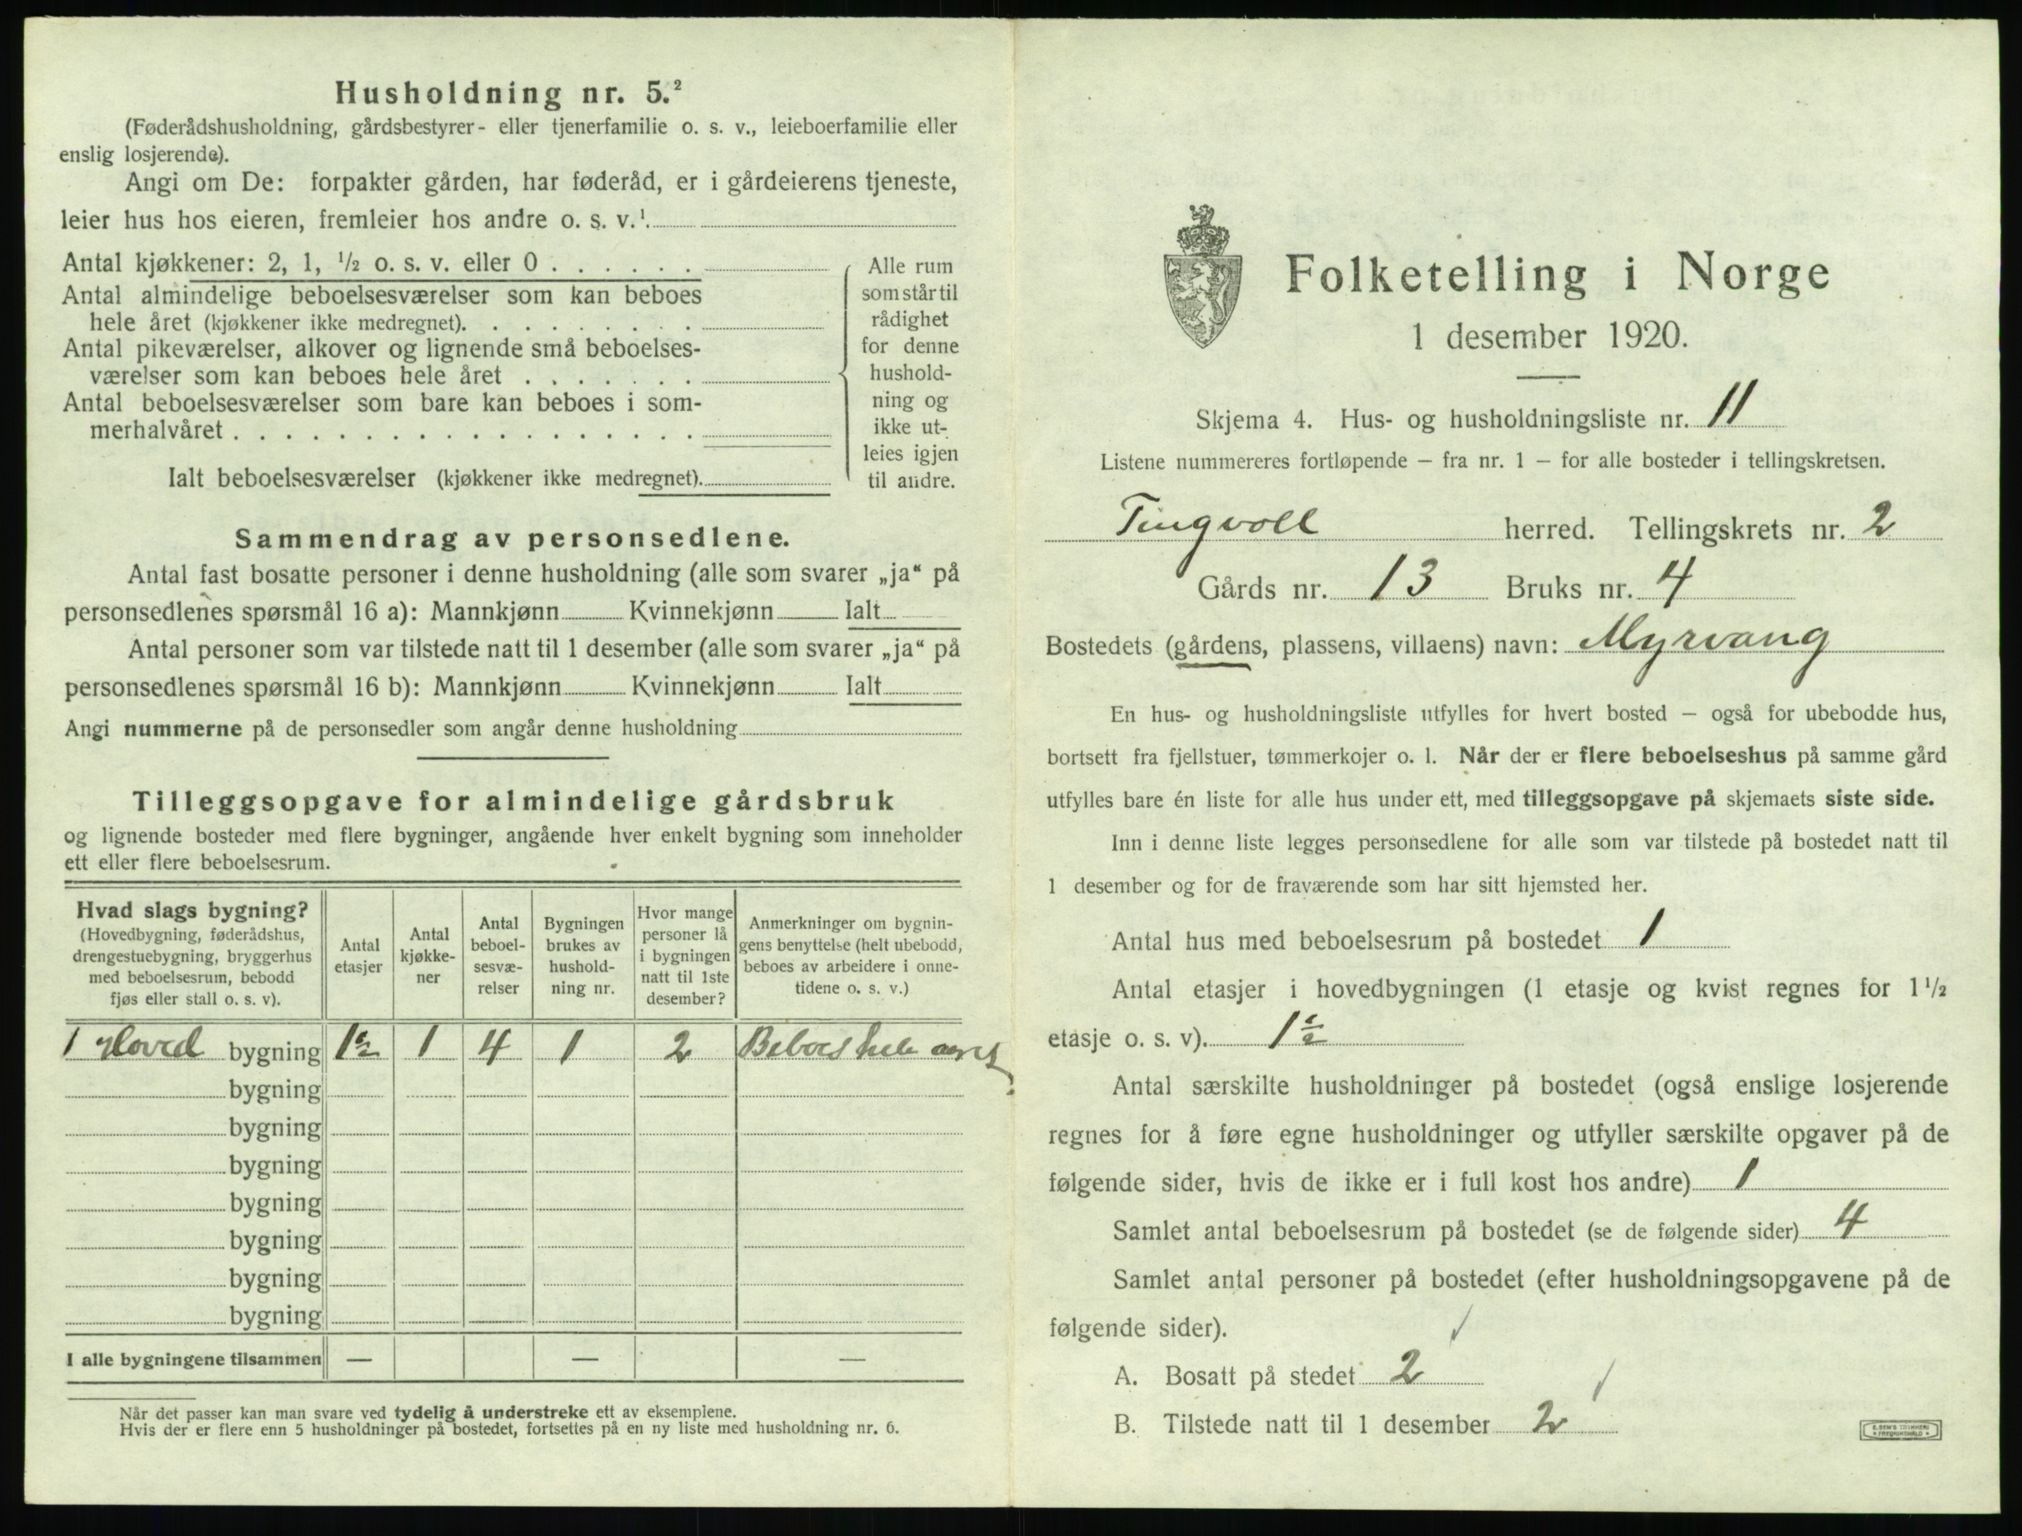 Husholdning nr. 5.²
(Føderådshusholdning, gårdsbestyrer- eller tjenerfamilie o. s. v., leieboerfamilie eller
enslig losjerende).
Angi om De: forpakter gården, har føderåd, er i gårdeierens tjeneste,
leier hus hos eieren, fremleier hos andre o. s. v.¹
Antal kjøkkener: 2, 1, ½ o. s. v. eller 0 . . . . . .
Antal almindelige beboelsesværelser som kan beboes
hele året (kjøkkener ikke medregnet). . . . . . . . .
Antal pikeværelser, alkover og lignende små beboelses-
værelser som kan beboes hele året . . . . . . .
Antal beboelsesværelser som bare kan beboes i som-
merhalvåret . . . . . . . . . . . . . . . . . .
Ialt beboelsesværelser (kjøkkener ikke medregnet).
Alle rum
som står til
rådighet
for denne
hushold-
ning og
ikke ut-
leies igjen
til andre.
Sammendrag av personsedlene.
Antal fast bosatte personer i denne husholdning (alle som svarer „ja“ på
personsedlenes spørsmål 16 a): Mannkjønn Kvinnekjønn Ialt
Antal personer som var tilstede natt til 1 desember (alle som svarer „ja“ på
personsedlenes spørsmål 16 b): Mannkjønn Kvinnekjønn Ialt
Angi nummerne på de personsedler som angår denne husholdning
Tilleggsopgave for almindelige gårdsbruk
og lignende bosteder med flere bygninger, angående hver enkelt bygning som inneholder
ett eller flere beboelsesrum.
Hvad slags bygning?
(Hovedbygning, føderådshus,
drengestuebygning, bryggerhus
med beboelsesrum, bebodd
fjøs eller stall o. s. v).
Antal
etasjer
Antal
kjøkke-
ner
Antal
beboel-
sesvæ-
relser
Bygningen
brukes av
hushold-
ning nr.
Hvor mange
personer lå
i bygningen
natt til 1ste
desember?
Anmerkninger om bygnin-
gens benyttelse (helt ubebodd,
beboes av arbeidere i onne-
tidene o. s. v.)
1 Hoved bygning 1½ 1 4 1 2 Beboes hele aaret
bygning
bygning
bygning
bygning
bygning
bygning
bygning
I alle bygningene tilsammen — — —
Når det passer kan man svare ved tydelig å understreke ett av eksemplene.
Hvis der er flere enn 5 husholdninger på bostedet, fortsettes på en ny liste med husholdning nr. 6.
Folketelling i Norge
1 desember 1920.
Skjema 4. Hus- og husholdningsliste nr. 11
Listene nummereres fortløpende – fra nr. 1 – for alle bosteder i tellingskretsen.
Tingvoll herred. Tellingskrets nr. 2
Gårds nr. 13 Bruks nr. 4
Bostedets (gårdens, plassens, villaens) navn: Myrvang
En hus- og husholdningsliste utfylles for hvert bosted – også for ubebodde hus,
bortsett fra fjellstuer, tømmerkojer o. l. Når der er flere beboelseshus på samme gård
utfylles bare én liste for alle hus under ett, med tilleggsopgave på skjemaets siste side.
Inn i denne liste legges personsedlene for alle som var tilstede på bostedet natt til
1 desember og for de fraværende som har sitt hjemsted her.
Antal hus med beboelsesrum på bostedet 1
Antal etasjer i hovedbygningen (1 etasje og kvist regnes for 1½
etasje o. s. v). 1½
Antal særskilte husholdninger på bostedet (også enslige losjerende
regnes for å føre egne husholdninger og utfyller særskilte opgaver på de
følgende sider, hvis de ikke er i full kost hos andre) 1
Samlet antal beboelsesrum på bostedet (se de følgende sider) 4
Samlet antal personer på bostedet (efter husholdningsopgavene på de
følgende sider).
A. Bosatt på stedet 2
B. Tilstede natt til 1 desember 2